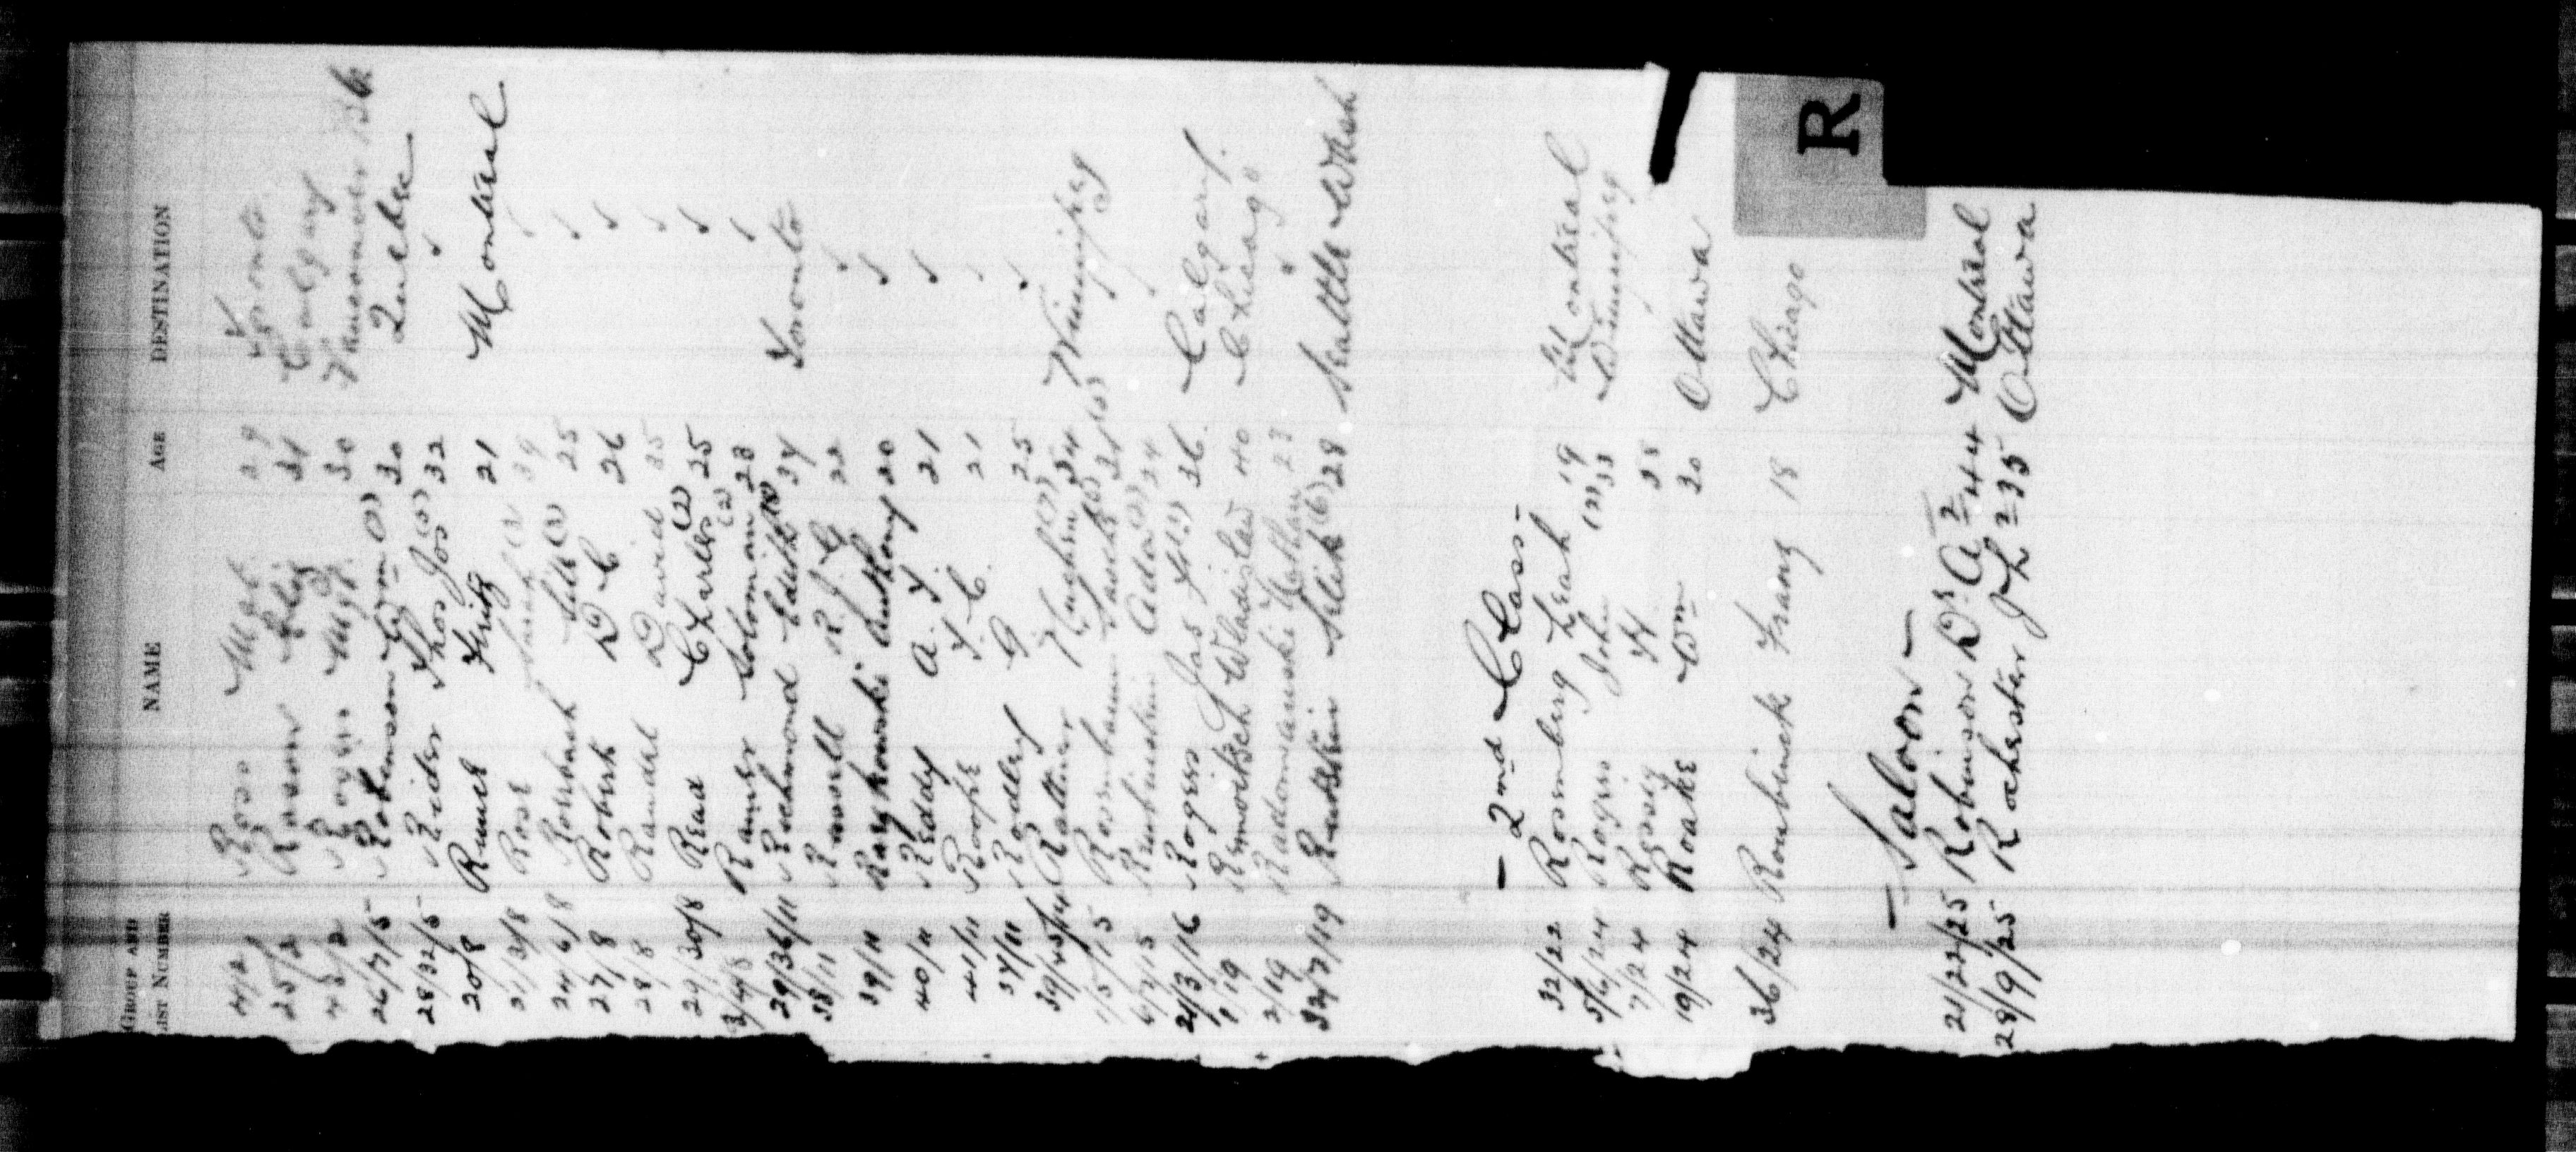 R
GROUP AND LIST NUMBER NAME AGE DESTINATION
4/2 Ross Mgt 29 Toronto
25/2 Rosson 31 Calgary
Rogers Mgt 30 Vancouver B.C.
26/7/5 Robinson Wm (2) 30 Quebec
28/32/5 Rider Thos Jos (5) 32 "
20/8 Rumel Fritz 21 Montreal
21/3/8 Rose Sarah (3) 39 "
24/6/8 Rosebush (3) 25 "
27/8 Robert D C 26 "
28/8 Randel David 35 "
29/30/8 Read Charles (2) 25 "
3/4/8 Ramer Soloman (2) 28 "
29/36/11 Richmond Edith (8) 34 Toronto
38/11 Russell R. J. G 22 "
39/11 Anthony 20 "
40/11 Reddy A. Y. 21 "
41/11 Roope Y. C. 21 "
37/11 Rodley G 25 "
39/45/14 Rattner (7) 34 Winnipeg
1/5/15 Rosenbaum (5) 31 "
6/7/15 Rubinstein Ada (2) 24 "
2/3/16 Rogers Jas 36 Calgary.
1/19 Wladislaw 40 Chicago
2/19 Radomanski Nathan 23 "
32/7/19 Rudskin Selik (6) 28 Seattle Wash
- 2nd Class -
32/22 Rosenberg Leah 19 Montreal
5/6/24 Rogers John (2) 33 Winnipeg
7/24 H 38 "
19/24 Roake Wm 20 Ottawa
36/24 Roubinek Franz 18 Chicago
- Saloon -
21/22/25 Robinson Dr A 2 44 Montreal
28/9/25 Rochester J L 2 35 Ottawa